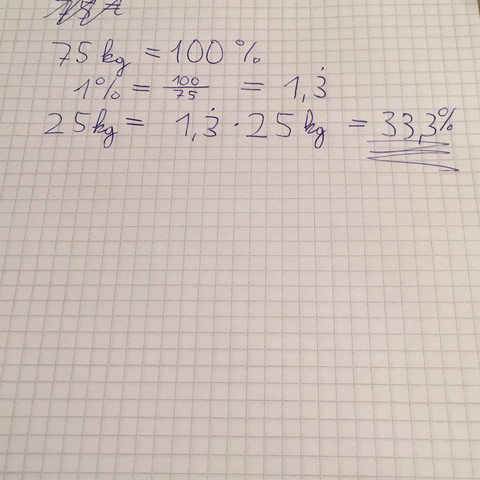 75 kg = 100 %
1% = 100/75 = 1,3̇
25kg = 1,3̇ · 25 kg = 33,3%